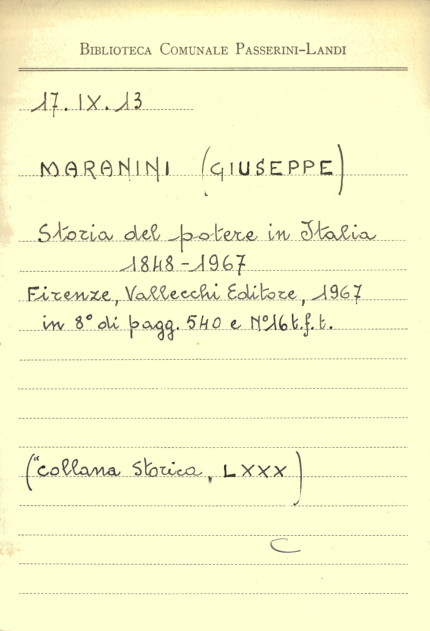 BIBLIOTECA COMUNALE PASSERINI-LANDI
17.IX.13
MARANINI (GIUSEPPE)
Storia del potere in Italia
1848-1967
Firenze, Vallecchi Editore, 1967
in 8° di pagg. 540 e N°16 t.f.t.
("Collana Storica, LXXX)
C